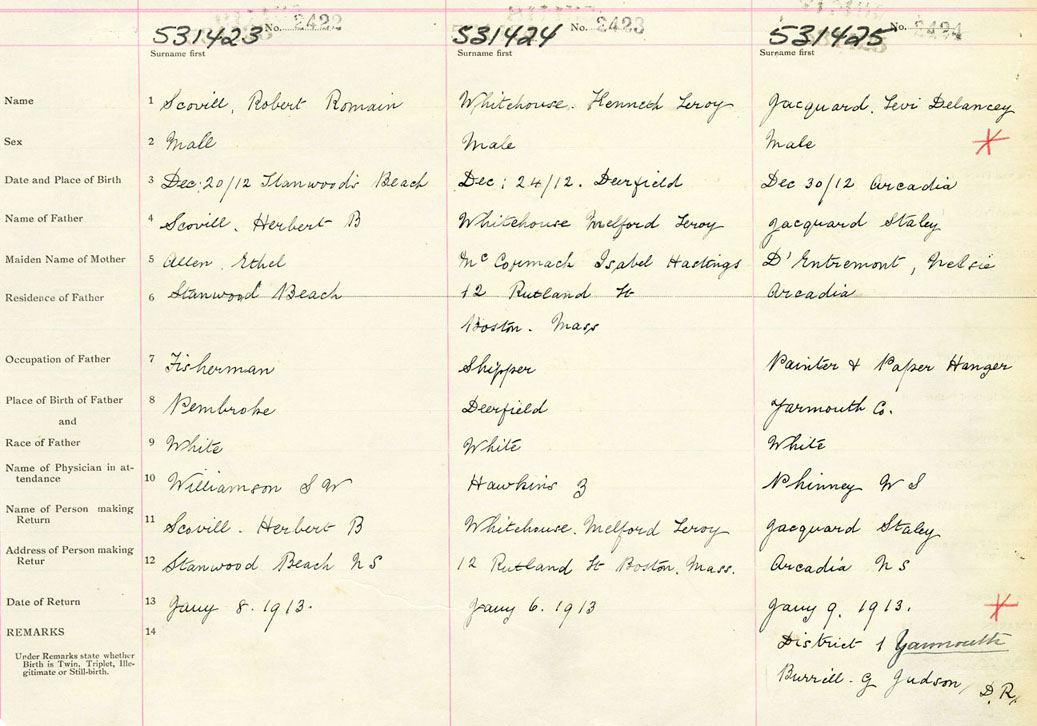 531423 No. 2422 531424 No. 2423 531425 No. 2424
Surname first Surname first Surname first
Name 1 Scovill, Robert Romain Whitehouse. Kenneth Leroy Jacquard, Levi Delancey
Sex 2 Mall Male Male
Date and Place of Birth 3 Dec: 20/12 Stanwood's Beach Dec: 24/12. Deerfield Dec 30/12 Arcadia
Name of Father 4 Scovill. Herbert B Whitehouse Melford Leroy Jacquard Staley
Maiden Name of Mother 5 Allen, Ethel McCormack Isabel Hastings D'Entremont, Nelsie
Residence of Father 6 Stanwood Beach 12 Rutland St Arcadia
Boston. Mass
Occupation of Father 7 Fisherman Shipper Painter & Paper Hanger
Place of Birth of Father 8 Pembroke Deerfield Yarmouth Co.
and
Race of Father 9 White White White
Name of Physician in at-
tendance 10 Williamson S W Hawkins Z Phinney W S
Name of Person making
Return 11 Scovill. Herbert B Whitehouse. Melford Leroy Jacquard Staley
Address of Person making
Retur 12 Stanwood Beach N S 12 Rutland St Boston. Mass. Arcadia N S
Date of Return 13 Jany 8. 1913. Jany 6. 1913 Jany 9. 1913.
REMARKS 14
District 1 Yarmouth
Under Remarks state whether
Birth is Twin, Triplet, Ille-
gitimate or Still-birth.
Burrill. G Judson, D. R,